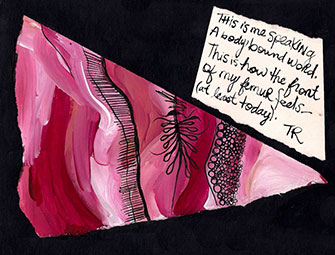 This is me speaking.
A body-bound word.
This is how the front
of my femur feels-
(at least today).
TR